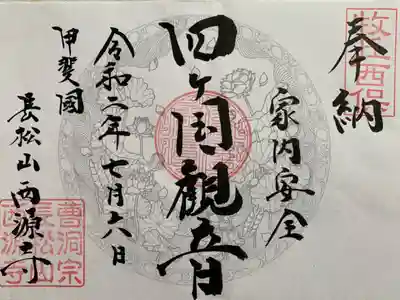 奉納
牧丘西保
家内安全
四ヶ国観音
令和二年七月六日
甲斐國
長松山西源寺
曹洞宗
長松山
西源寺